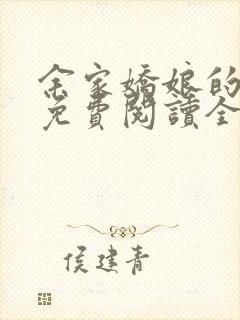 余家嬌娘的
免費閱讀全
侯建青